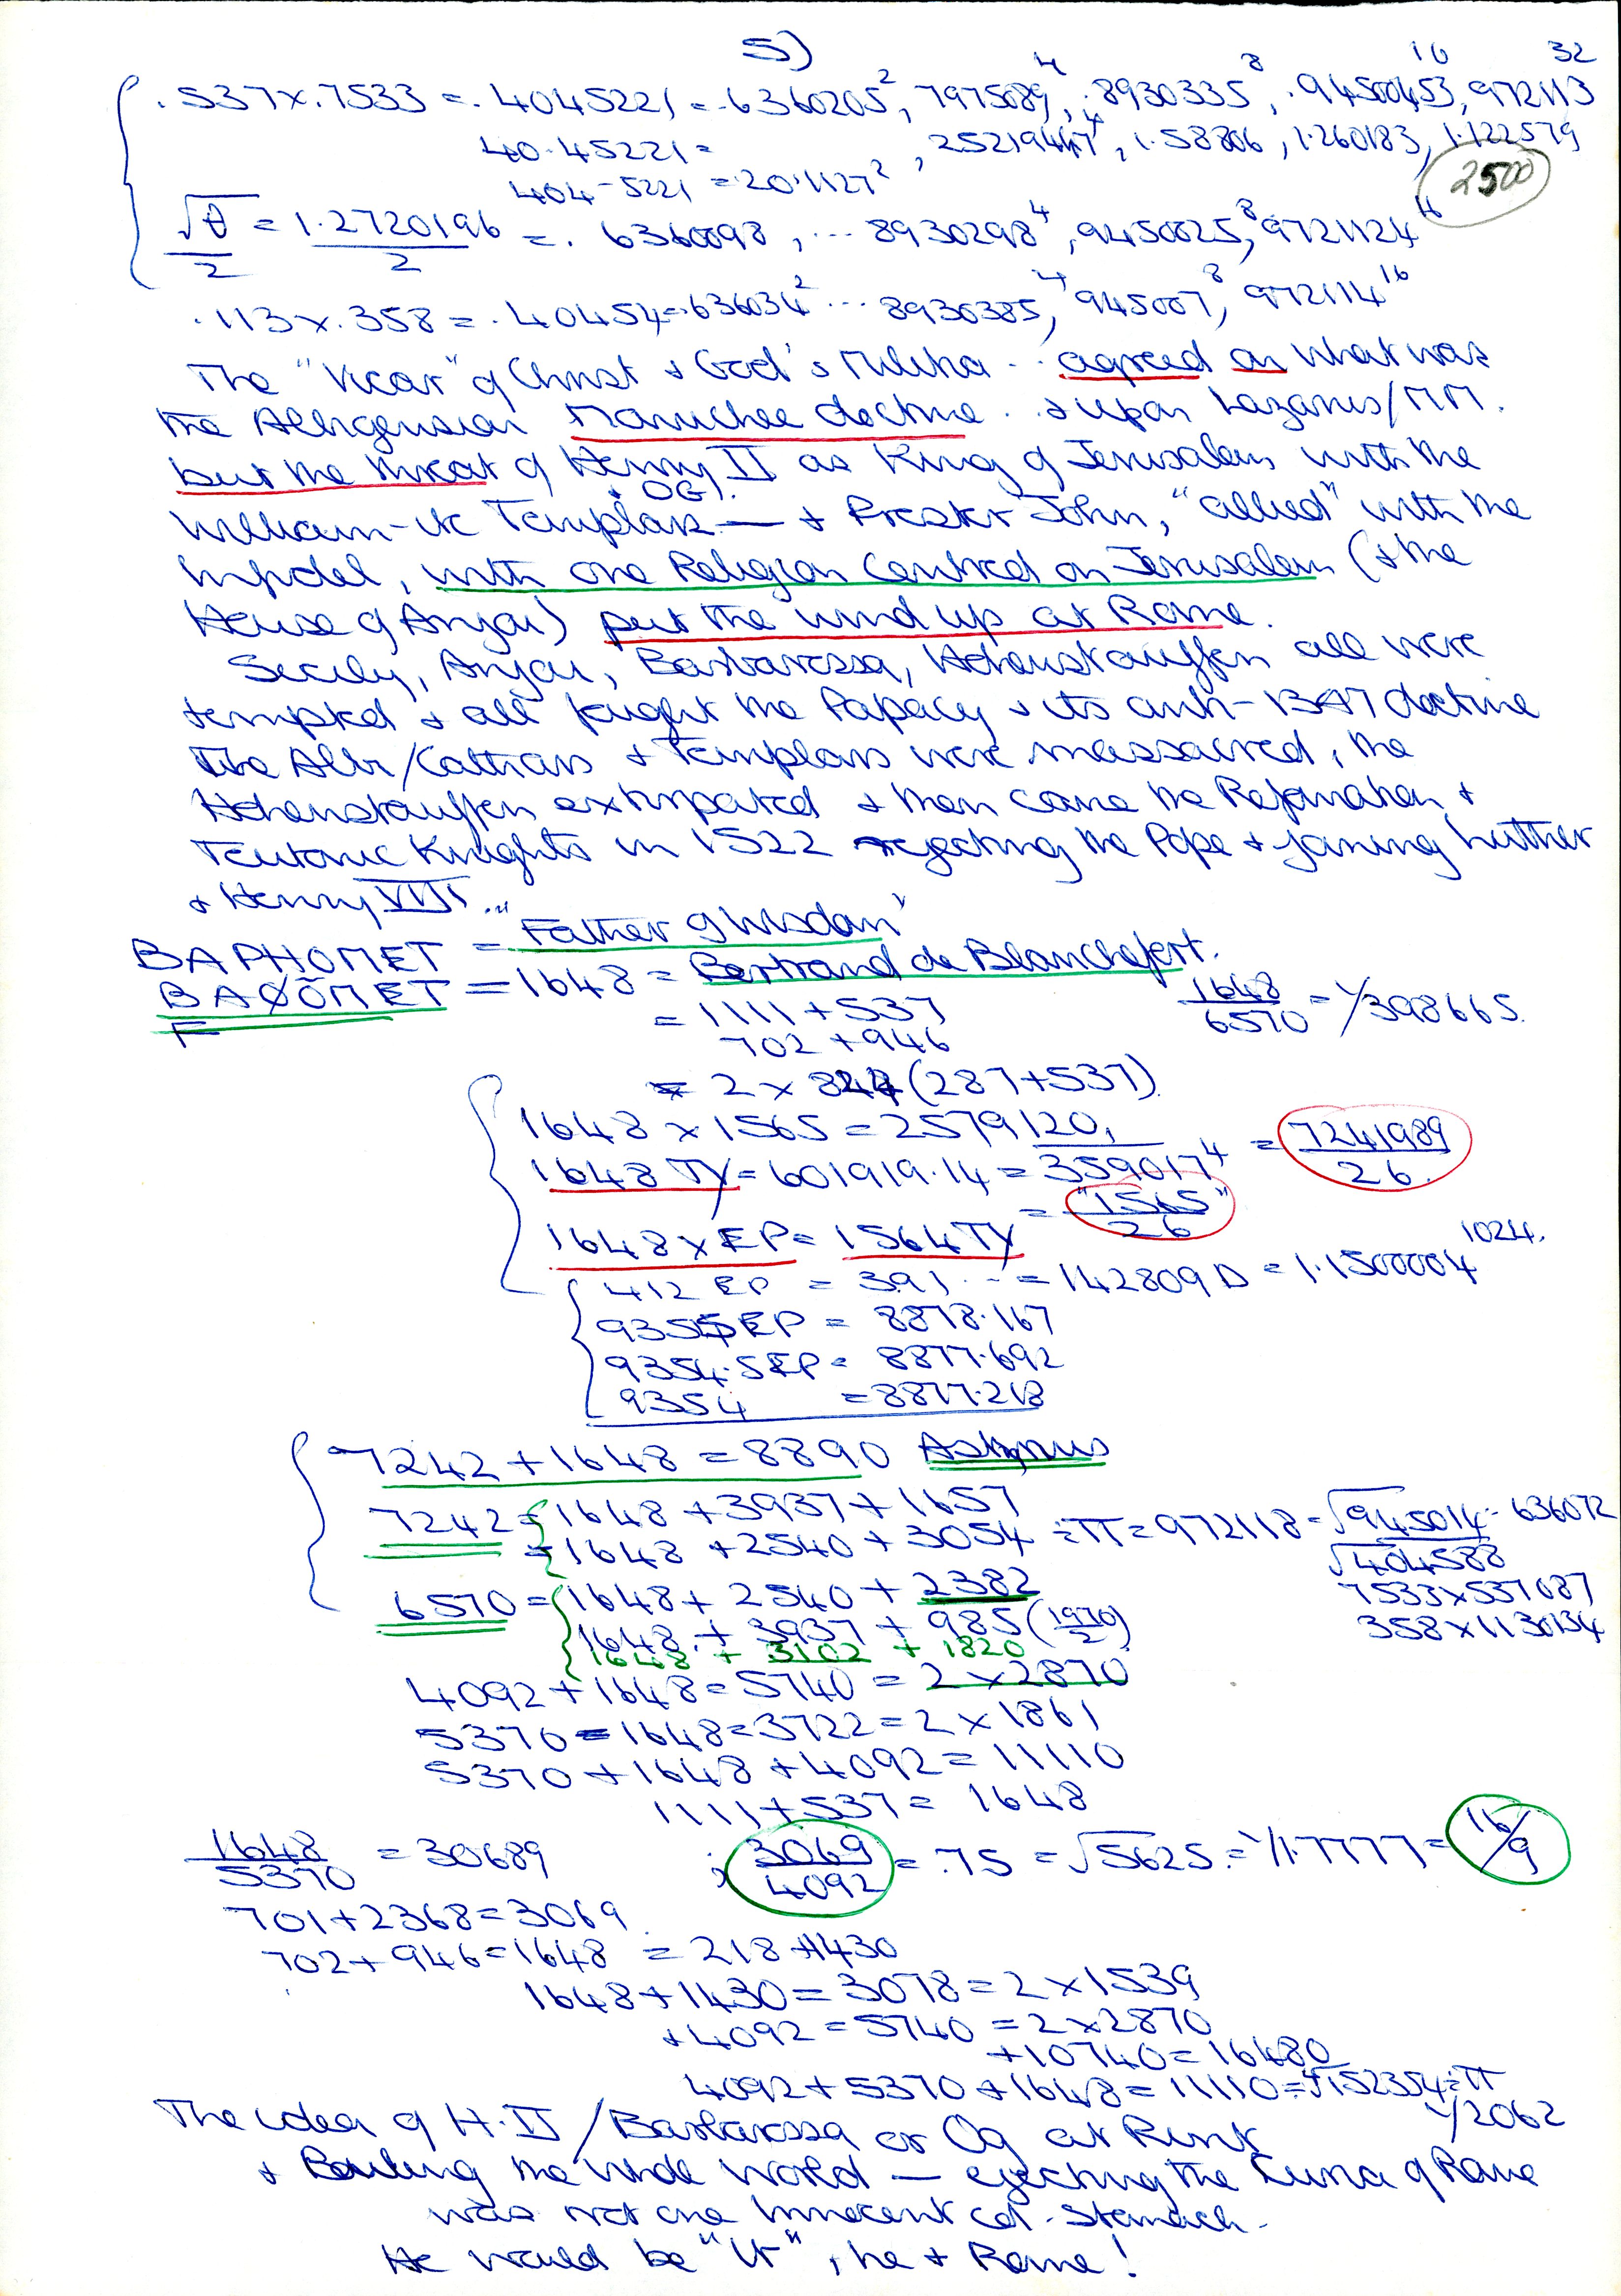 5)
.537 x .7533 = .4045221 = .6360205², 7975089⁴, .8930335⁸, .94500453¹⁶, 972113³²
40.45221 = , 25219447⁴, 1.58806, 1.260183, 1.122579
404-5221 = 20.1127²
2500
√θ/2 = 1.2720196/2 = .6360098, ... 8930298⁴, 9450025⁸, 9721124¹⁶
.113 x .358 = .40454 = .636034² ... 8930385⁴, 945007⁸, 972114¹⁶
The "Vicar" of Christ & God's Militia .. agreed on what was
the Albigensian Manichee doctrine .. & upon Lazarus/MM.
but the threat of Henry II as King of Jerusalem with the
& OG).
William-ite Templars — & Prester John, "allied" with the
Infidel, with one Religion centred on Jerusalem (& the
House of Anjou) put the wind up at Rome.
Sicily, Anjou, Barbarossa, Hohenstauffen all were
tempted & all fought the Papacy & its anti- doctrine
The Albi/Cathars & Templars were massacred, the
Hohenstauffen extirpated & then came the Reformation &
Teutonic Knights in 1522 rejecting the Pope & joining Luther
& Henry VIII ..
BAPHOMET = "Father of Wisdom"
BAØÖMET = 1648 = Bertrand de Blanchefort.
F
= 1111 + 537
702 + 946
1648/6570 = 1/398665.
= 2 x 824 (287+537)
1648 x 1565 = 2579120,
1648 TY = 601919.14 = 359017⁴ = 7241989/26.
1648 x EP = 1564 TY = "1565"/26
412 EP = 391 ... = 142809 D = 1.1500004 1024.
9355 EP = 8878.167
9354.5 EP = 8877.692
9354 = 8877.218
7242 + 1648 = 8890
7242 = 1648 + 3937 + 1657
= 1648 + 2540 + 3054 ÷ π = 972118 = √945014 = 636072
√404588
6570 = 1648 + 2540 + 2382
7533 x 537087
1648 + 3937 + 985 (1970/2)
358 x 1130134
1648 + 3102 + 1820
4092 + 1648 = 5740 = 2 x 2870
5370 - 1648 = 3722 = 2 x 1861
5370 + 1648 + 4092 = 11110
1111 + 537 = 1648
1648/5370 = 30689 ; 3069/4092 = .75 = √5625. = 1/1.7777 = 16/9
701 + 2368 = 3069
702 + 946 = 1648 = 218 + 1430
1648 + 1430 = 3078 = 2 x 1539
+ 4092 = 5740 = 2 x 2870
+ 10740 = 16480
4092 + 5370 + 1648 = 11110 = ∜152354 ÷ π
1/2062
The idea of H.II / Barbarossa or Og at Pont
& the whole World — ejecting the Curia of Rome
was not one Innocent cd. stomach.
He would be "It", he & Rome!